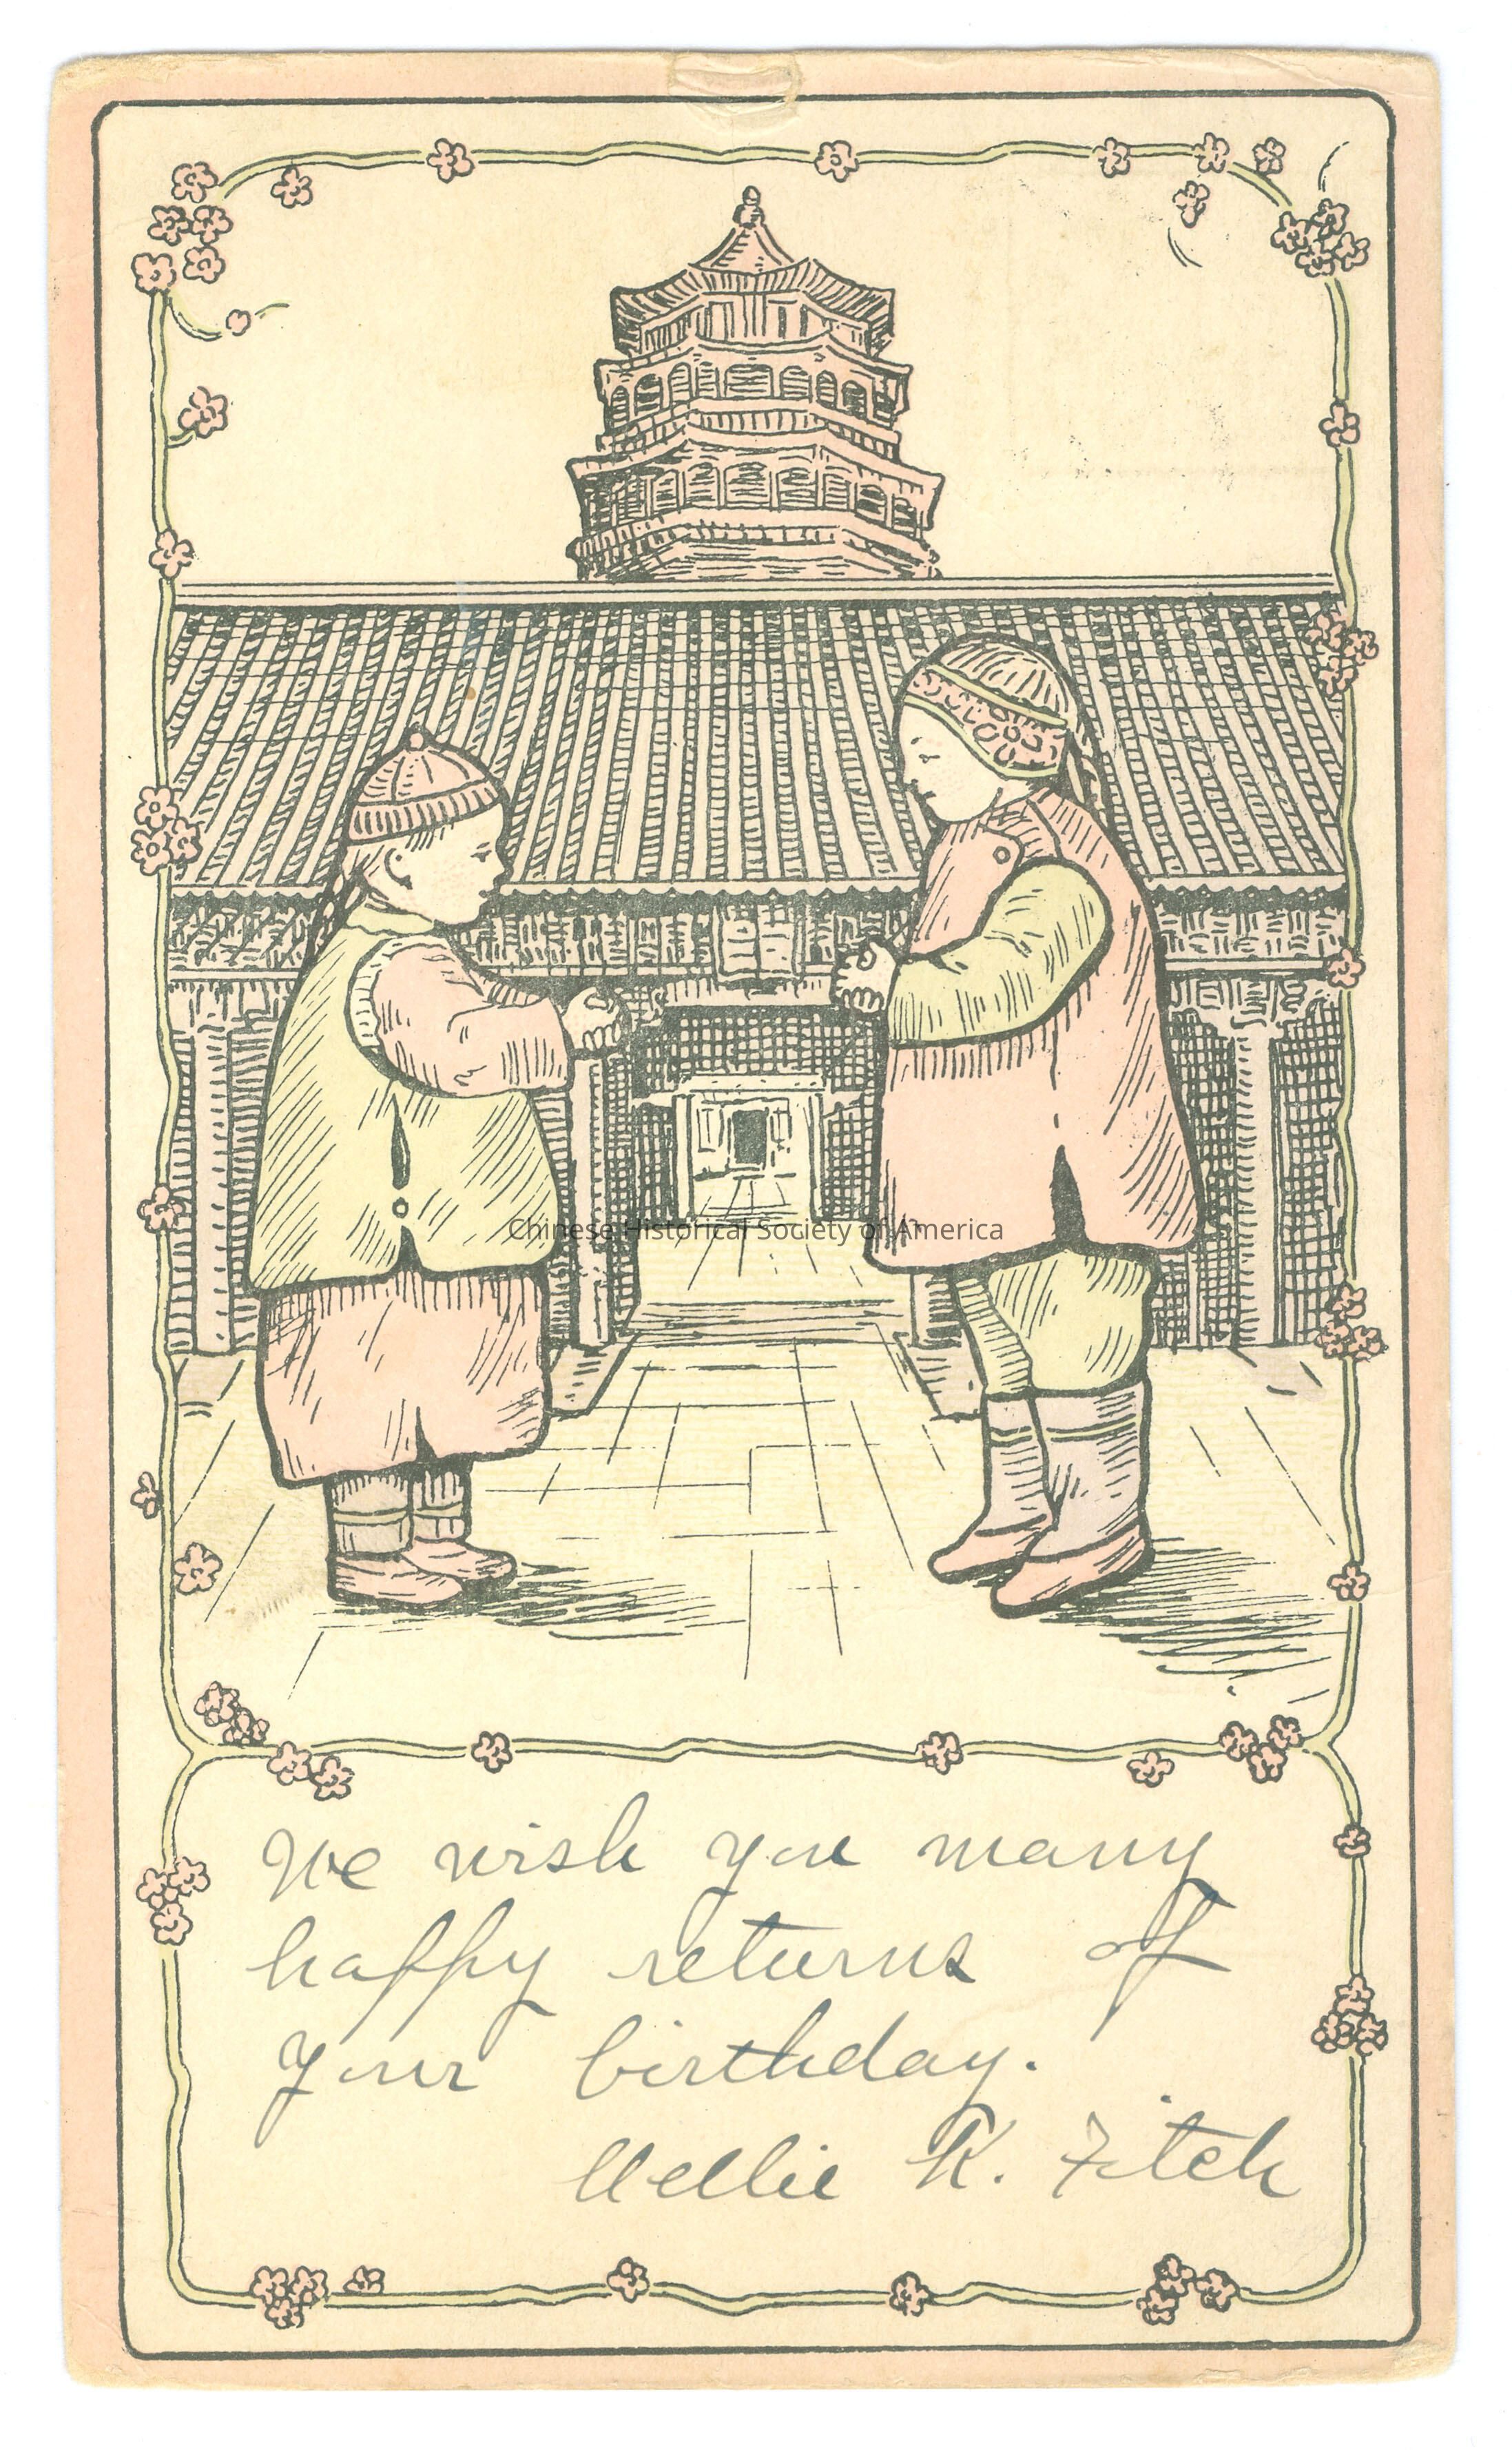 Chinese Historical Society of America
We wish you many
happy returns of
your birthday.
Nellie K. Fitch